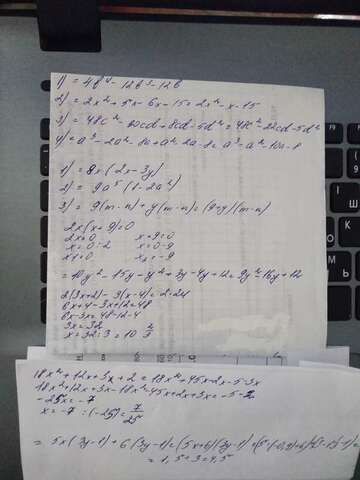 1) = 4b⁴ - 12b³ - 12b
2) = 2x² + 5x - 6x - 15 = 2x² - x - 15
3) = 48c² - 30cd + 8cd - 5d² = 48c² - 22cd - 5d²
4) = a³ - 2a² - 8a + a² - 2a - 8 = a³ - a² - 10a - 8
1) = 4x(2x - 3y)
2) = 9a⁵(1 - 2a²)
3) = 9(m - n) + y(m - n) = (9 + y)(m - n)
2x(x + 9) = 0
2x = 0 x + 9 = 0
x = 0 : 2 x = 0 - 9
x₁ = 0 x₂ = -9
= 10y² - 15y - y² + 3y - 4y + 12 = 9y² - 16y + 12
2(3x + 2) - 3(x - 4) = 2·24
6x + 4 - 3x + 12 = 48
6x - 3x = 48 - 12 - 4
3x = 32
x = 32 : 3 = 10 2/3
18x² + 12x + 3x + 2 = 18x² + 45x - 2x - 5 - 3x
18x² + 12x + 3x - 18x² - 45x + 2x + 3x = -5 - 2
-25x = -7
x = -7 : (-25) = 7/25
= 5x(3y - 1) + 6(3y - 1) = (5x + 6)(3y - 1) =
= 1,5·3 = 4,5